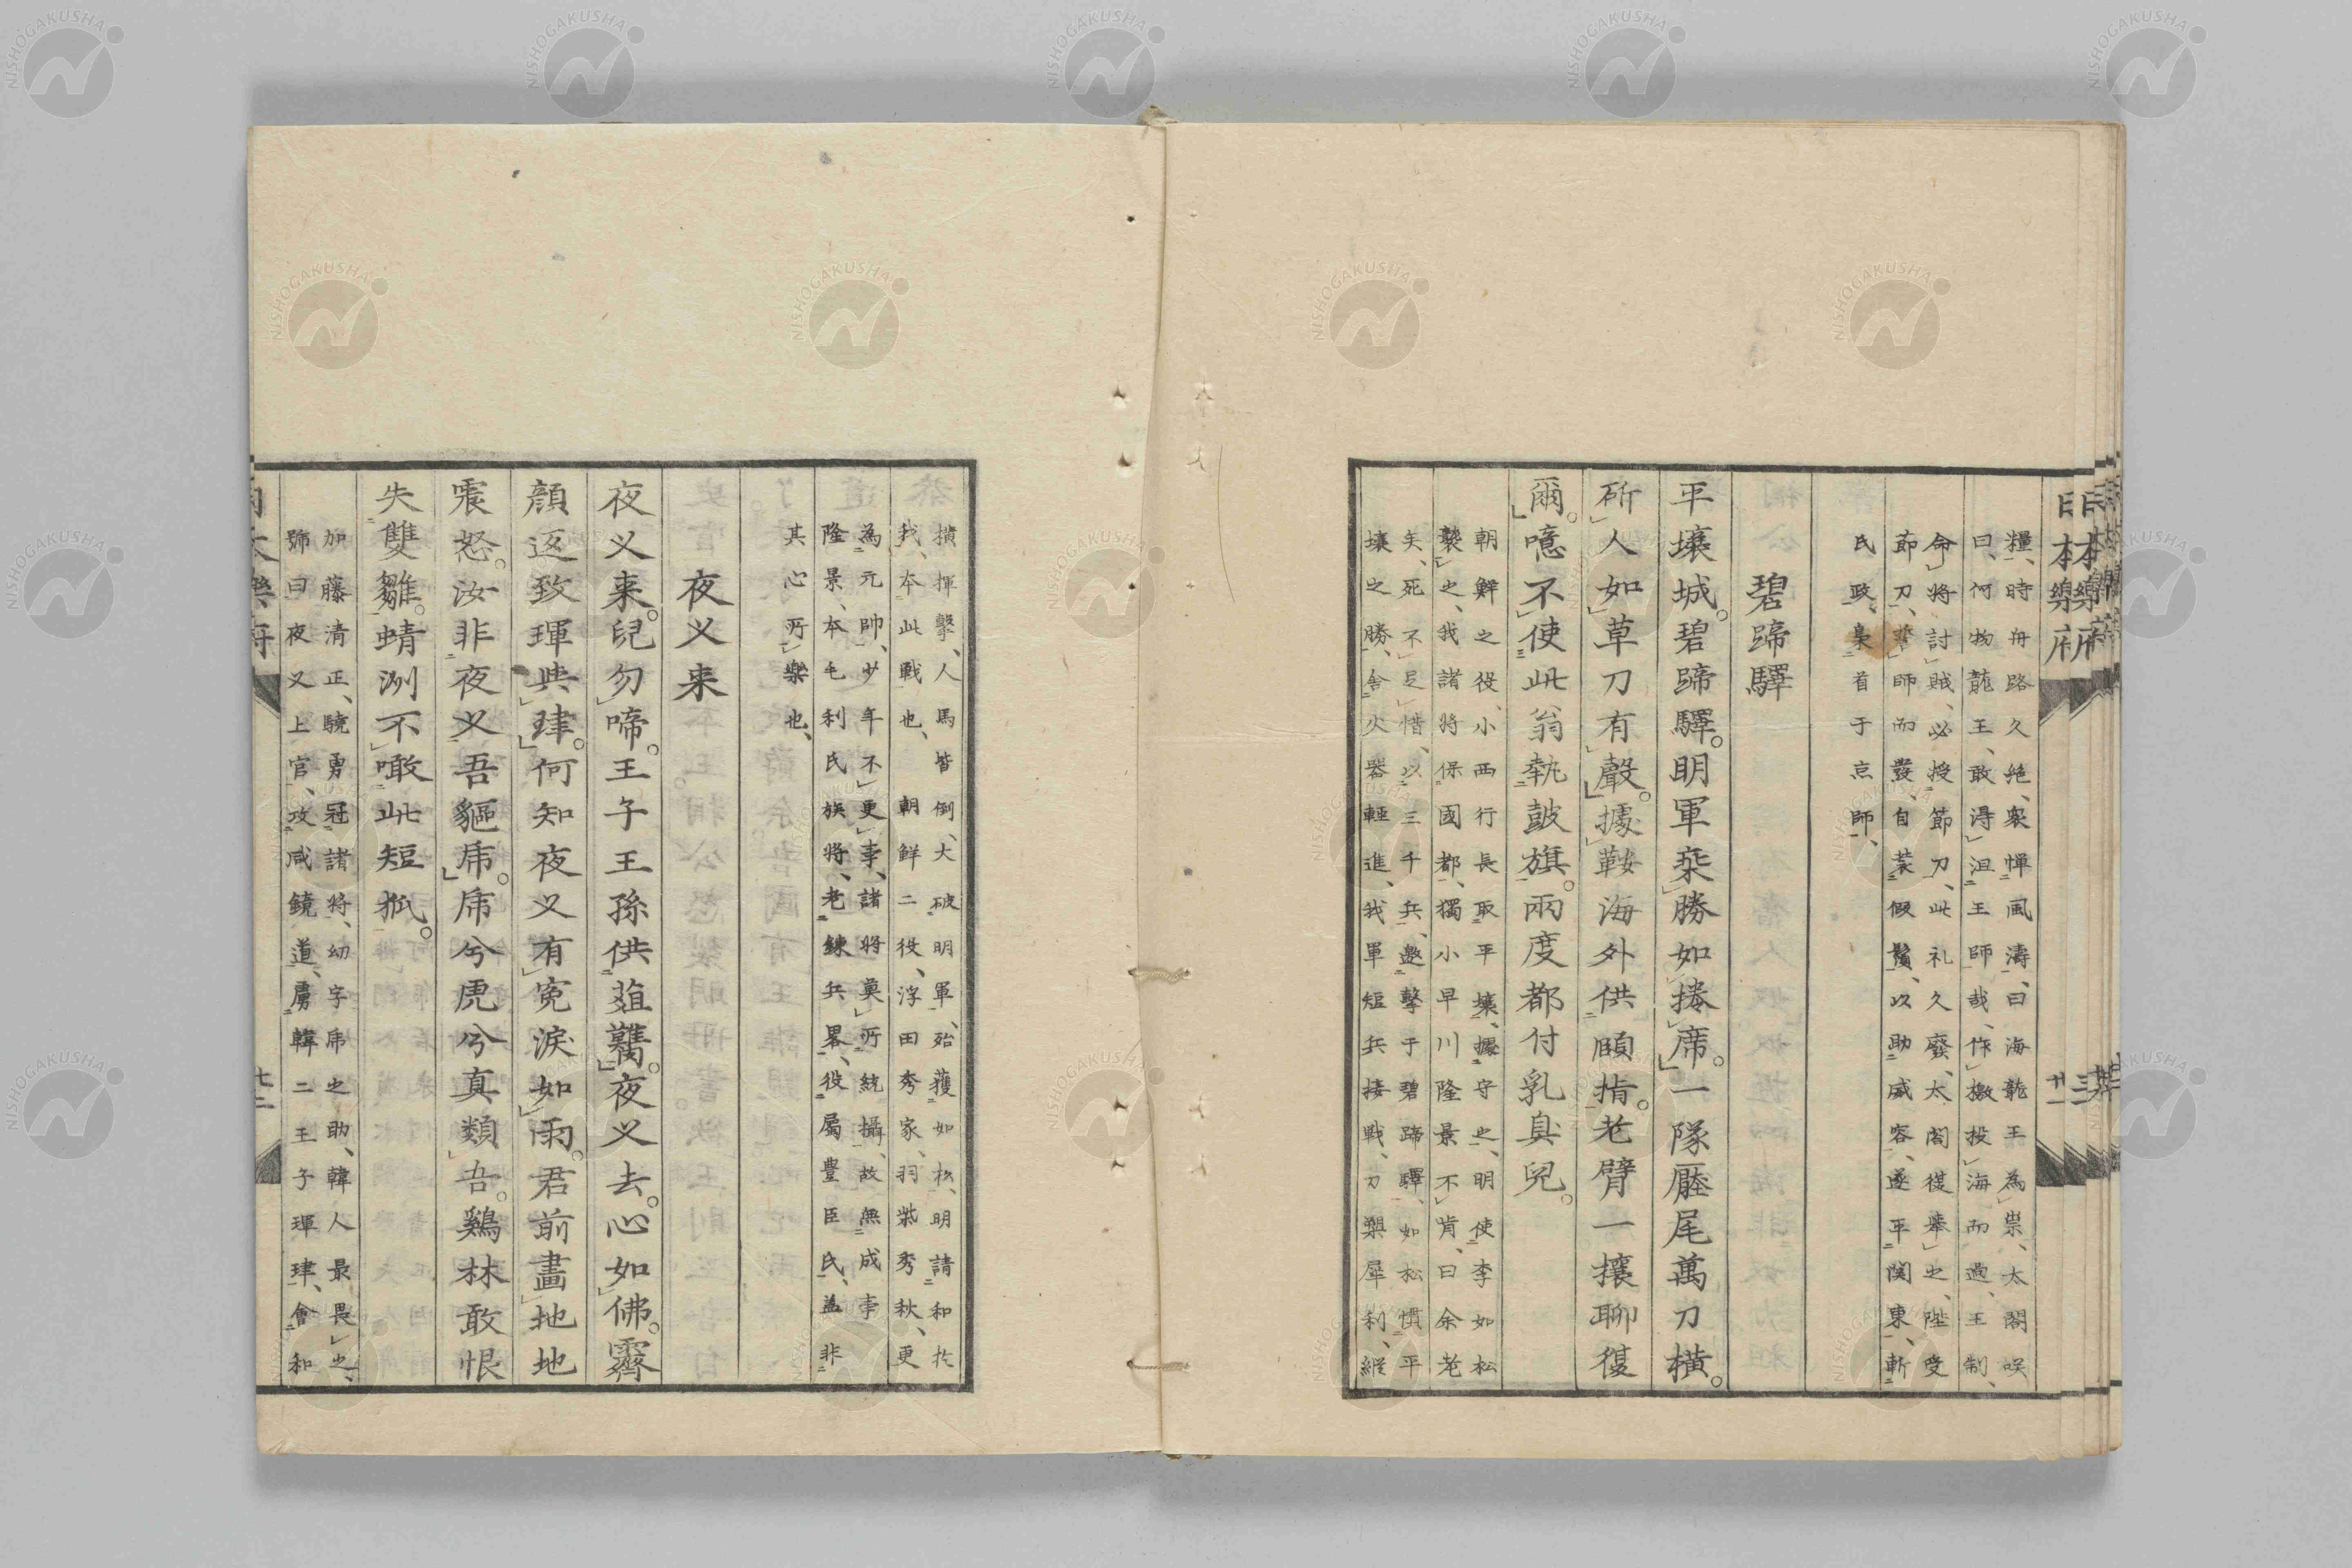 糧、時舟路久絶、衆憚風濤、曰海龍王為祟、太閤咲
曰、何物龍王、敢淂沮王師哉、作檄投海而過、王制、
命將討賊、必授節刀、此礼久廢、太閤復挙之、陛受
節刀、率師而發、自装假鬚、以助威容、遂平関東、斬
氏政、梟首于京師、
碧蹄驛
平壤城。碧蹄驛。明軍乗勝如捲席。一隊塵尾萬刀横。
斫人如草刀有聲。據鞍海外供頤指。老臂一攘聊復
爾。噫不使此翁執鼓旗。兩度都付乳臭兒。
朝鮮之役、小西行長取平壤、據守之、明使李如松
襲之、我諸將保國都、獨小早川隆景不肯、曰余老
矣、死不足惜、以三千兵、邀擊于碧蹄驛、如松慣平
壤之勝、舎火器輕進、我軍短兵接戰、刀槊犀利、縦
横揮擊、人馬皆倒、大破明軍、殆獲如松、明請和於
我、本此戰也、朝鮮二役、浮田秀家、羽柴秀秋、更
為元帥、少年不更事、諸将莫所統攝、故無成事
隆景、本毛利氏族將、老錬兵畧、役屬豊臣氏、盖非
其心所樂也、
夜乂来
夜乂来。兒勿啼。王子王孫供葅臡。夜乂去。心如佛。霽
顔返致琿與𤥽。何知夜乂有寃淚如雨。君前畫地地
震怒。汝非夜乂吾驅乕。乕兮虎兮真類吾。鷄林敢恨
失雙雛。蜻洌不敢噉此短狐。
加藤清正、驍勇冠諸將、幼字乕之助、韓人最畏之、
號曰夜乂上官、攻咸鏡道、虜韓二王子琿𤥽、會和
日本樂府
廿二